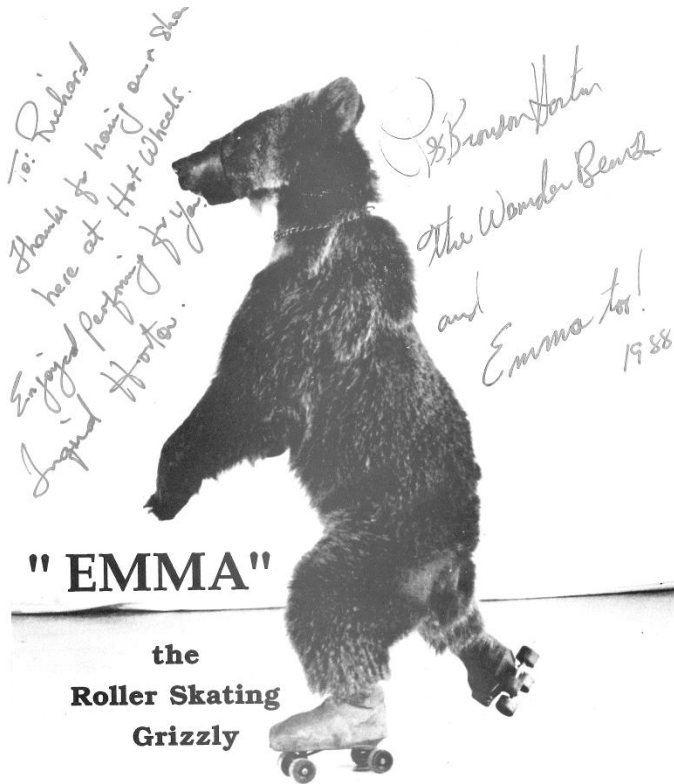 To: Richard
Thanks for having our Show
here at Hot Wheels.
Enjoyed performing for you.
Ingrid Horton.
Bronson Horton
The Wonder Bears
and
Emma too!
1988
" EMMA"
the
Roller Skating
Grizzly